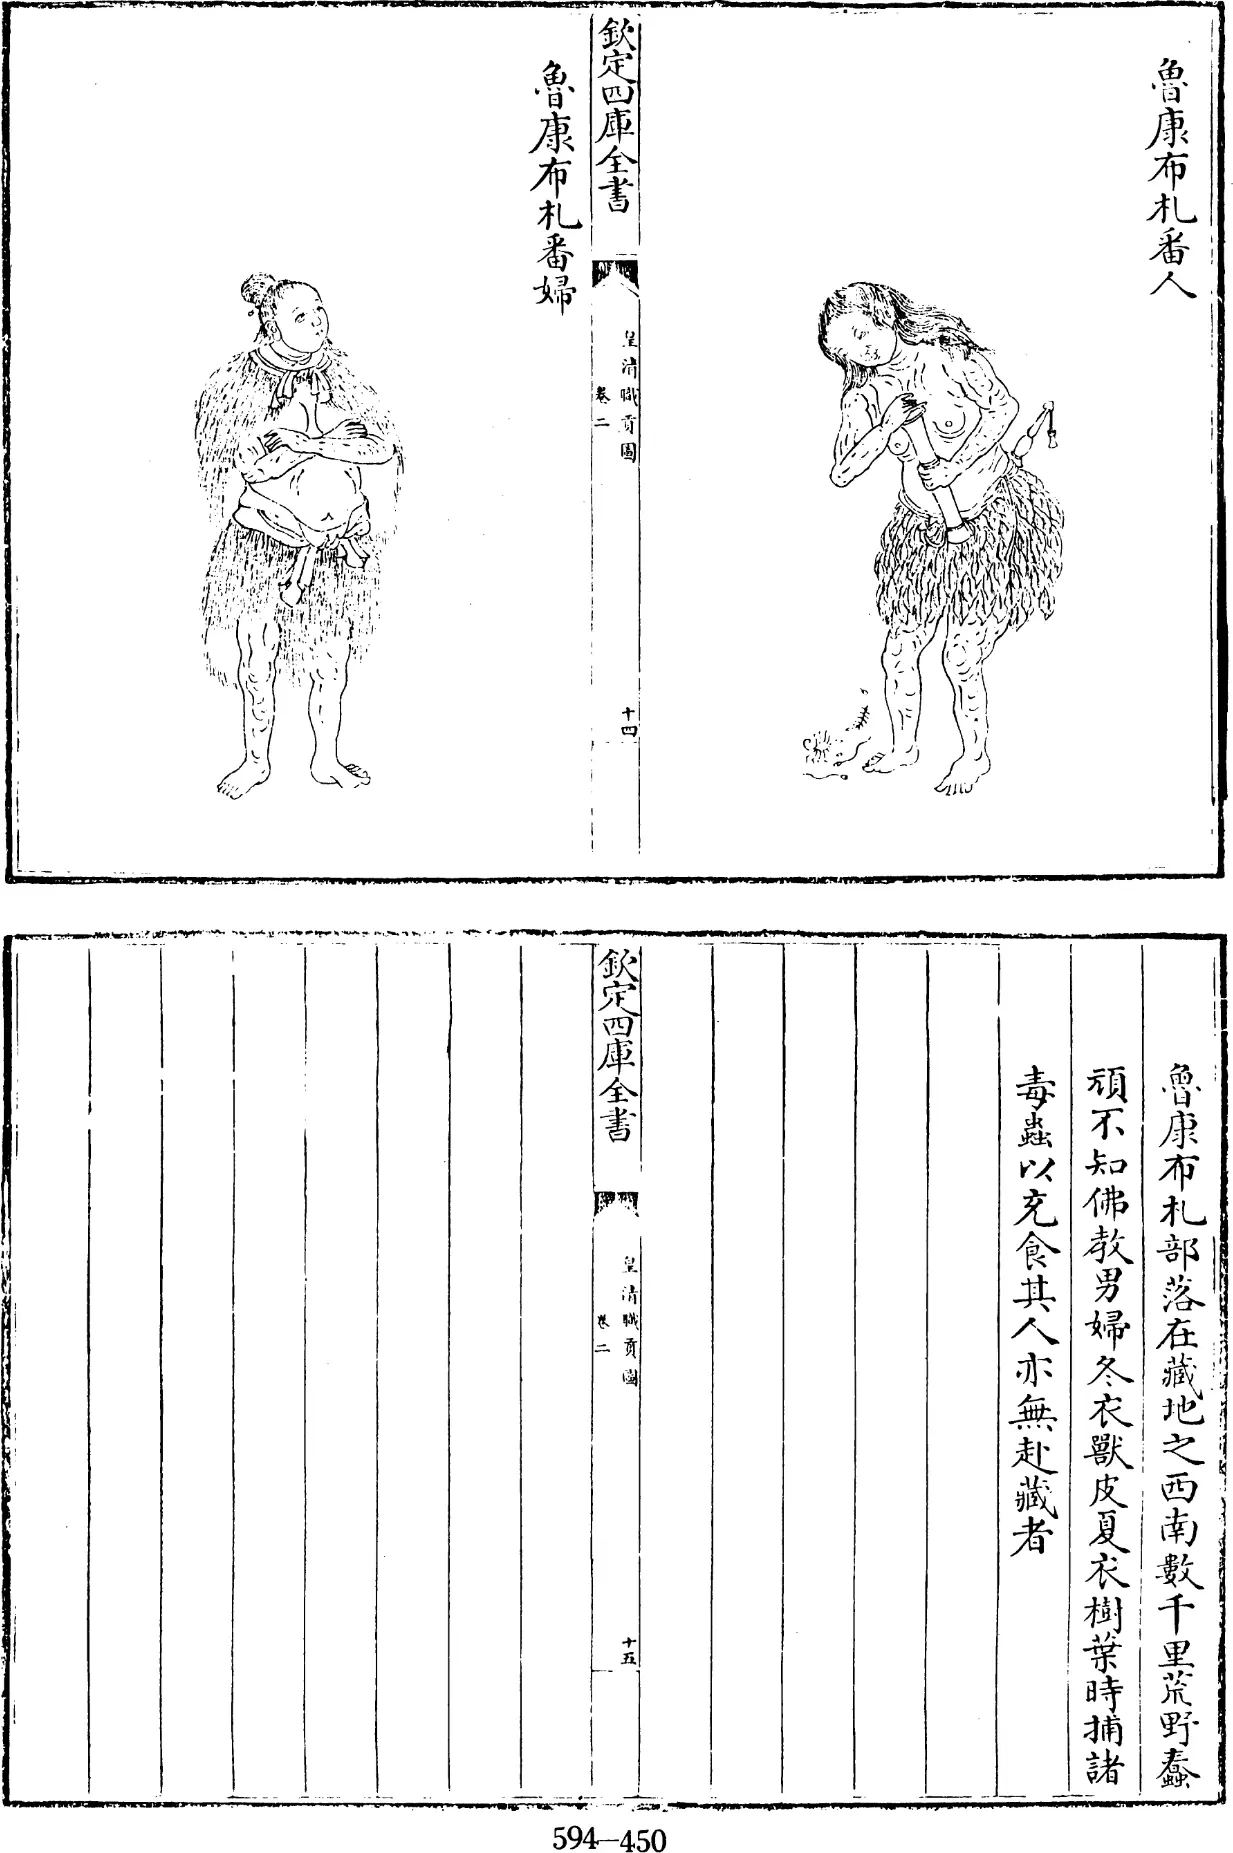 魯康布札番人
欽定四庫全書
皇清職貢圖
卷二
十四
魯康布札番婦
魯康布札部落在藏地之西南數千里荒野蠢
頑不知佛教男婦冬衣獸皮夏衣樹葉時捕諸
毒蟲以充食其人亦無赴藏者
欽定四庫全書
皇清職貢圖
卷二
十五
594—450